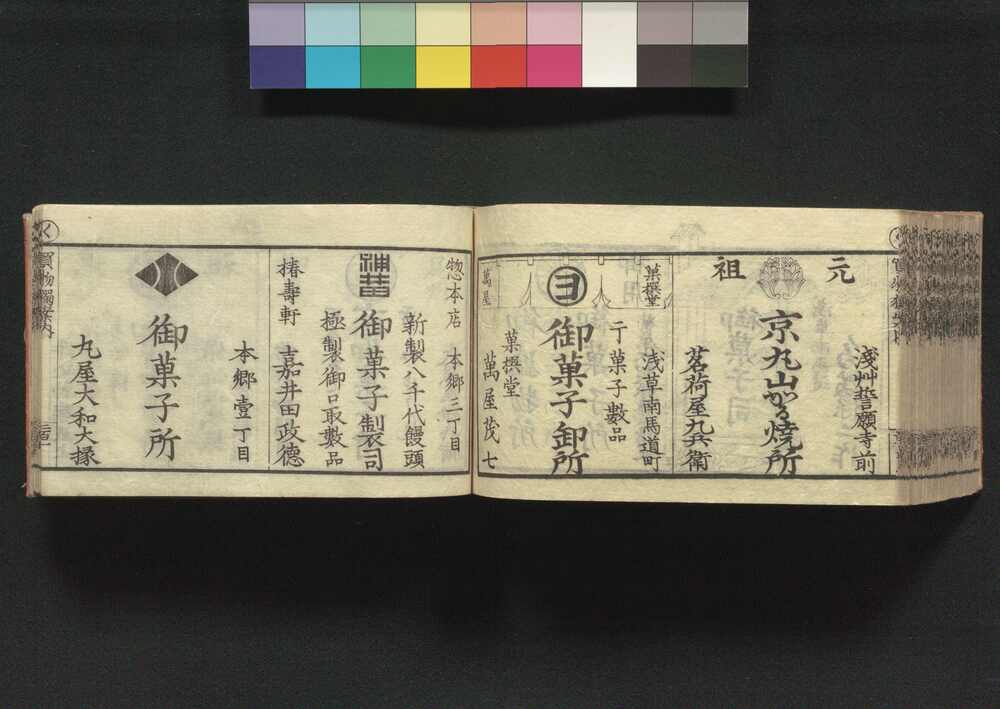 元祖
浅艸誓願寺前
京丸山かる焼所
茗荷屋九兵衛
菓撰堂
浅草南馬道町
干菓子數品
ヨ
御菓子卸所
菓撰堂
萬屋茂七
萬屋
惣本店 本郷三丁目
新製八千代饅頭
御菓子製司
極製御口取數品
嘉井田政德
椿壽軒
本郷壹丁目
御菓子所
丸屋大和大掾
く
買物獨案内